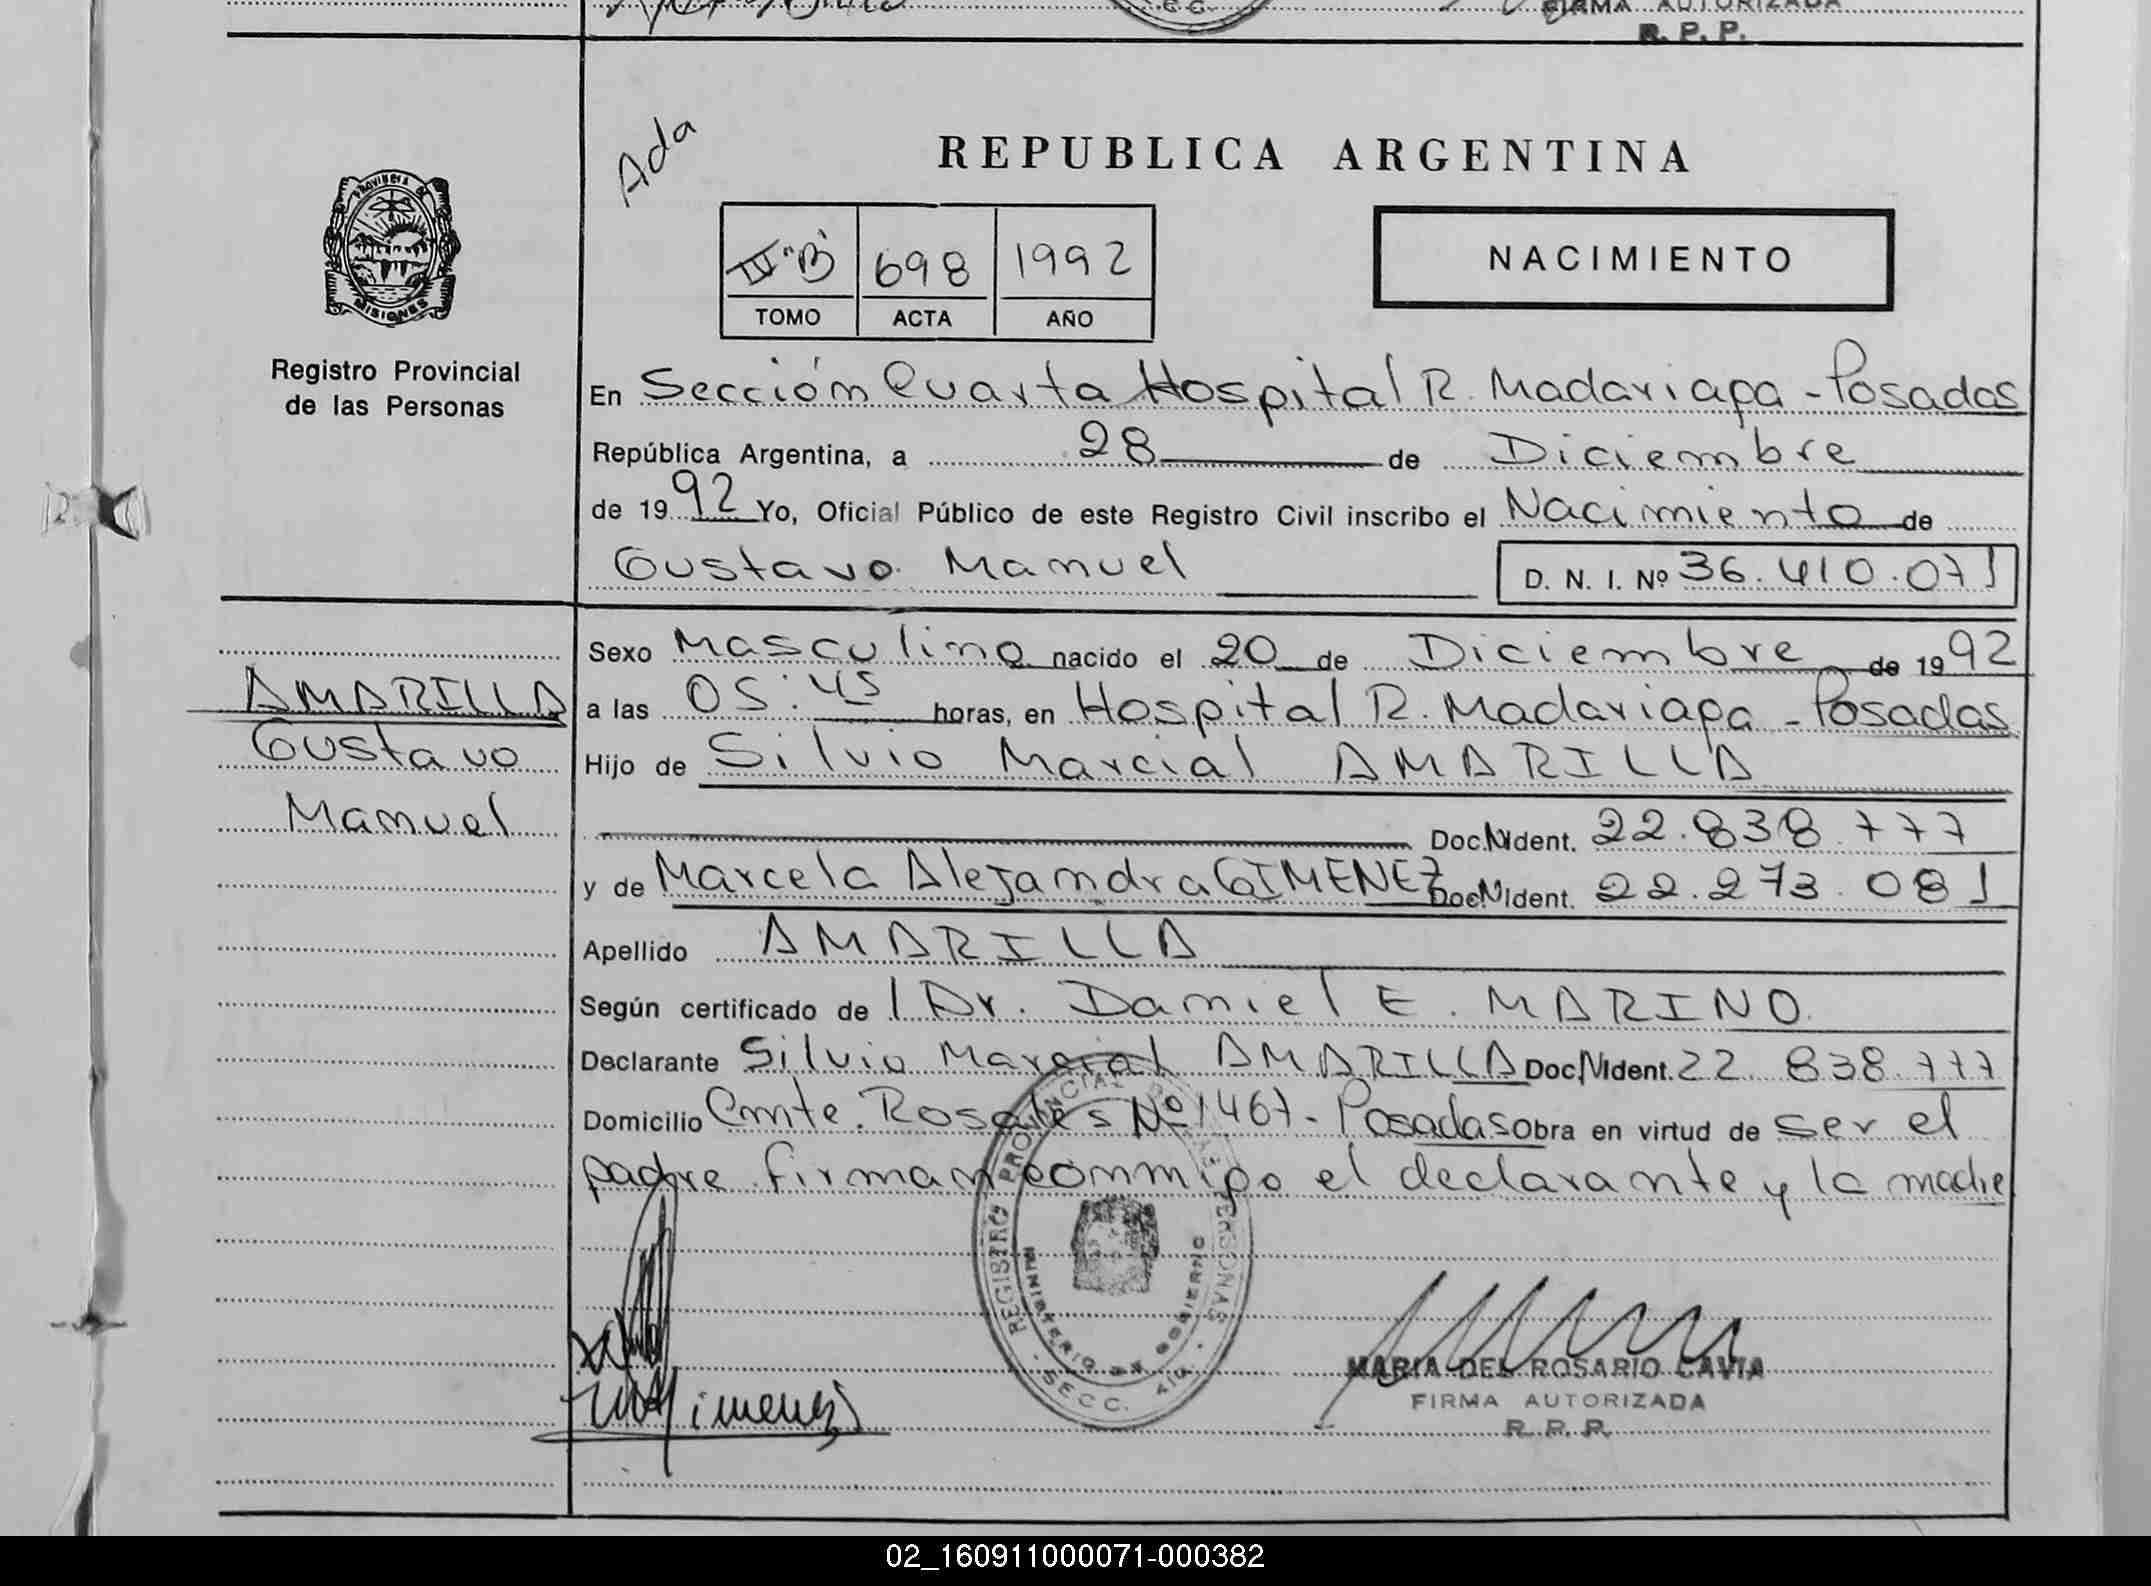 FIRMA AUTORIZADA
R. P. P.
Ada
REPUBLICA ARGENTINA
PROVINCIA DE
MISIONES
Registro Provincial
de las Personas
"B" 698 1992
TOMO ACTA AÑO
NACIMIENTO
En Sección Cuarta Hospital R. Madariaga - Posadas
República Argentina, a 28 de Diciembre
de 1992 Yo, Oficial Público de este Registro Civil inscribo el Nacimiento de
Gustavo Manuel D. N. I. Nº 36.410.071
AMARILLA
Gustavo
Manuel
Sexo Masculino nacido el 20 de Diciembre de 1992
a las 05:45 horas, en Hospital R. Madariaga - Posadas
Hijo de Silvio Marcial AMARILLA
Doc.N.Ident. 22.838.777
y de Marcela Alejandra GIMENEZ Doc.N.Ident. 22.273.081
Apellido AMARILLA
Según certificado de l Dr. Daniel E. MARINO
Declarante Silvio Marcial AMARILLA Doc.N.Ident. 22.838.777
Domicilio Cmte. Rosales Nº 1467 - Posadas obra en virtud de ser el
padre firman conmigo el declarante y la madre
REGISTRO PROVINCIAL DE LAS PERSONAS
MINISTERIO DE GOBIERNO
SECC. 4ta.
Gimenez
MARIA DEL ROSARIO CAVIA
FIRMA AUTORIZADA
R. P. P.
02_160911000071-000382